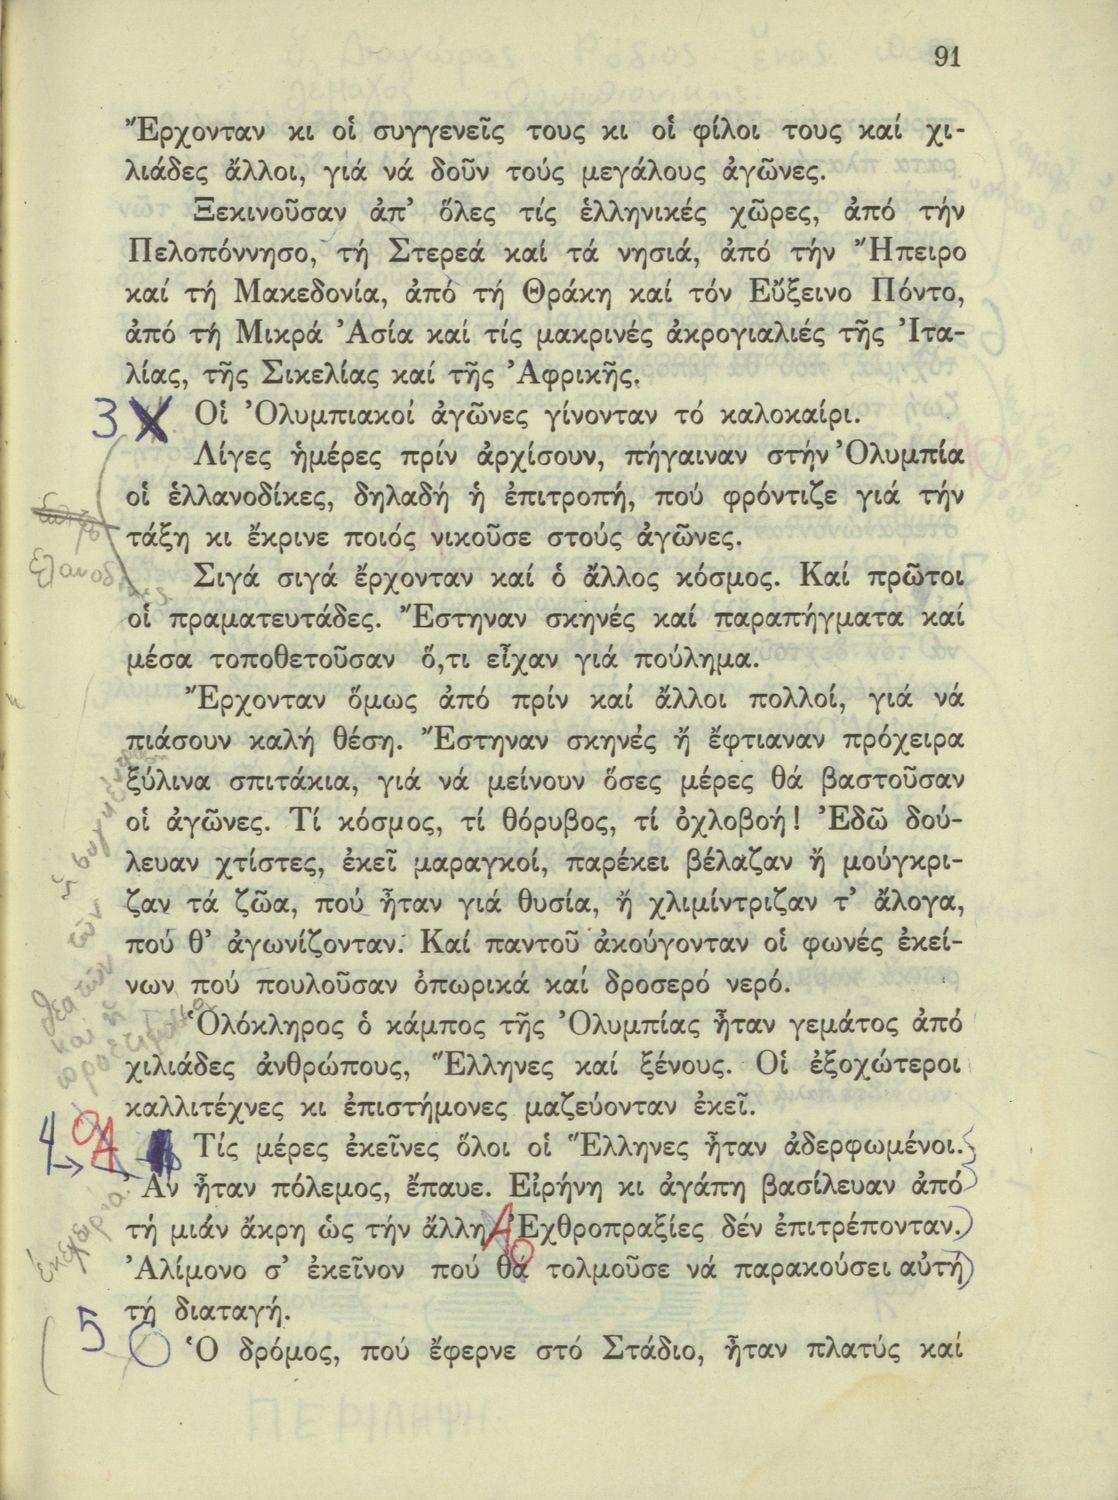 91
Ἔρχονταν κι οἱ συγγενεῖς τους κι οἱ φίλοι τους καί χι-
λιάδες ἄλλοι, γιά νά δοῦν τούς μεγάλους ἀγῶνες.
Ξεκινοῦσαν ἀπ' ὅλες τίς ἑλληνικές χῶρες, ἀπό τήν
Πελοπόννησο, τή Στερεά καί τά νησιά, ἀπό τήν Ἤπειρο
καί τή Μακεδονία, ἀπό τή Θράκη καί τόν Εὔξεινο Πόντο,
ἀπό τή Μικρά Ἀσία καί τίς μακρινές ἀκρογιαλιές τῆς Ἰτα-
λίας, τῆς Σικελίας καί τῆς Ἀφρικῆς.
3 Οἱ Ὀλυμπιακοί ἀγῶνες γίνονταν τό καλοκαίρι.
Λίγες ἡμέρες πρίν ἀρχίσουν, πήγαιναν στήν Ὀλυμπία
οἱ ἑλλανοδίκες, δηλαδή ἡ ἐπιτροπή, πού φρόντιζε γιά τήν
τάξη κι ἔκρινε ποιός νικοῦσε στούς ἀγῶνες.
Σιγά σιγά ἔρχονταν καί ὁ ἄλλος κόσμος. Καί πρῶτοι
οἱ πραματευτάδες. Ἔστηναν σκηνές καί παραπήγματα καί
μέσα τοποθετοῦσαν ὅ,τι εἶχαν γιά πούλημα.
Ἔρχονταν ὅμως ἀπό πρίν καί ἄλλοι πολλοί, γιά νά
πιάσουν καλή θέση. Ἔστηναν σκηνές ἤ ἔφτιαναν πρόχειρα
ξύλινα σπιτάκια, γιά νά μείνουν ὅσες μέρες θά βαστοῦσαν
οἱ ἀγῶνες. Τί κόσμος, τί θόρυβος, τί ὀχλοβοή! Ἐδῶ δού-
λευαν χτίστες, ἐκεῖ μαραγκοί, παρέκει βέλαζαν ἤ μούγκρι-
ζαν τά ζῶα, πού ἦταν γιά θυσία, ἤ χλιμίντριζαν τ' ἄλογα,
πού θ' ἀγωνίζονταν. Καί παντοῦ ἀκούγονταν οἱ φωνές ἐκεί-
νων πού πουλοῦσαν ὀπωρικά καί δροσερό νερό.
Ὁλόκληρος ὁ κάμπος τῆς Ὀλυμπίας ἦταν γεμάτος ἀπό
χιλιάδες ἀνθρώπους, Ἕλληνες καί ξένους. Οἱ ἐξοχώτεροι
καλλιτέχνες κι ἐπιστήμονες μαζεύονταν ἐκεῖ.
4 Τίς μέρες ἐκεῖνες ὅλοι οἱ Ἕλληνες ἦταν ἀδερφωμένοι.
Ἄν ἦταν πόλεμος, ἔπαυε. Εἰρήνη κι ἀγάπη βασίλευαν ἀπό
τή μιάν ἄκρη ὡς τήν ἄλλη. Ἐχθροπραξίες δέν ἐπιτρέπονταν.
Ἀλίμονο σ' ἐκεῖνον πού θά τολμοῦσε νά παρακούσει αὐτή
τή διαταγή.
5 Ὁ δρόμος, πού ἔφερνε στό Στάδιο, ἦταν πλατύς καί